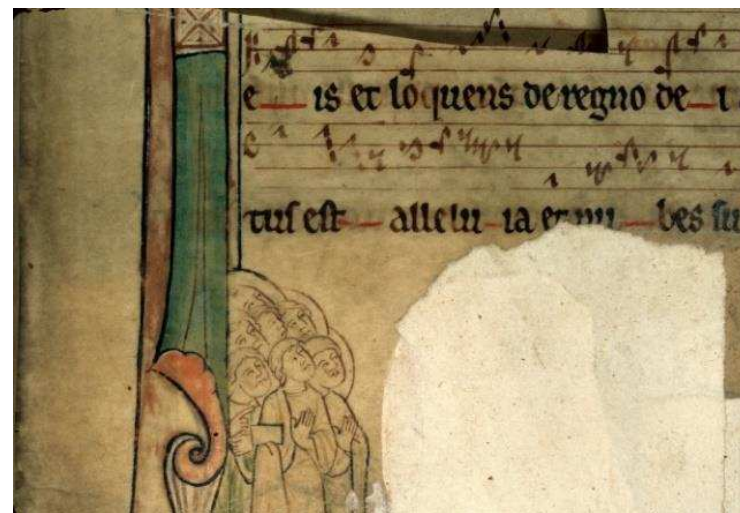 e is et loquens de regno de i
tus est allelu ia et nu bes su